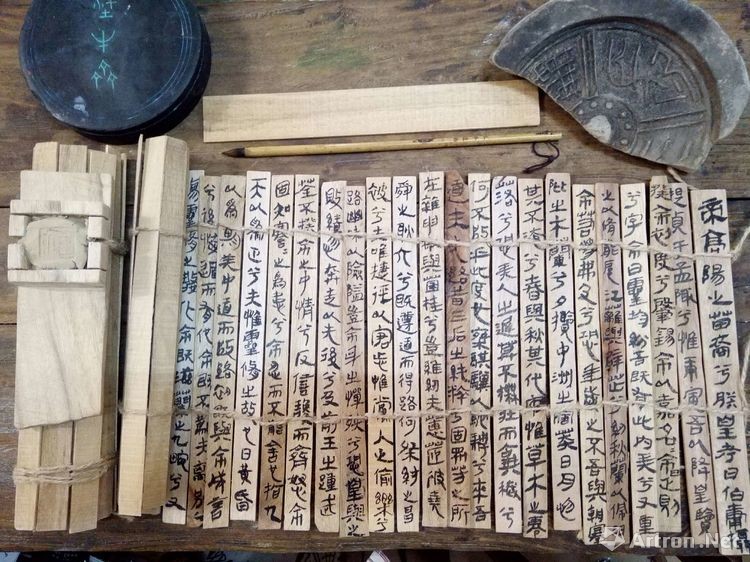 帝高陽之苗裔兮朕皇考曰伯庸攝
提貞于孟陬兮惟庚寅吾以降皇覽
揆余初度兮肇錫余以嘉名名余曰正則
兮字余曰靈均紛吾既有此內美兮又重
之以脩能扈江離與辟芷兮紉秋蘭以為佩
余若將弗及兮恐年歲之不吾與朝搴
阰之木蘭兮夕攬中洲之宿莽日月忽
其不淹兮春與秋其代序惟草木之零
落兮恐美人之遲暮不撫壯而棄穢兮
何不改此度也乘騏驥以馳騁兮來吾
道夫先路昔三后之純粹兮固眾芳之所
在雜申椒與菌桂兮豈維紉夫蕙茝彼堯
舜之耿介兮既遵道而得路何桀紂之昌
披兮夫唯捷徑以窘步惟黨人之偷樂兮
路幽昧以險隘豈余身之憚殃兮恐皇輿之
敗績忽奔走以先後兮及前王之踵武
荃不揆余之中情兮反信讒而齊怒余
固知謇謇之為患兮余忍而不能舍也指九
天以為正兮夫惟靈脩之故也曰黃昏
以為期羌中道而改路初既與余成言
兮後悔遁而有他余既不難夫離別
傷靈脩之數化余既滋蘭之九畹兮又
Artron.Net